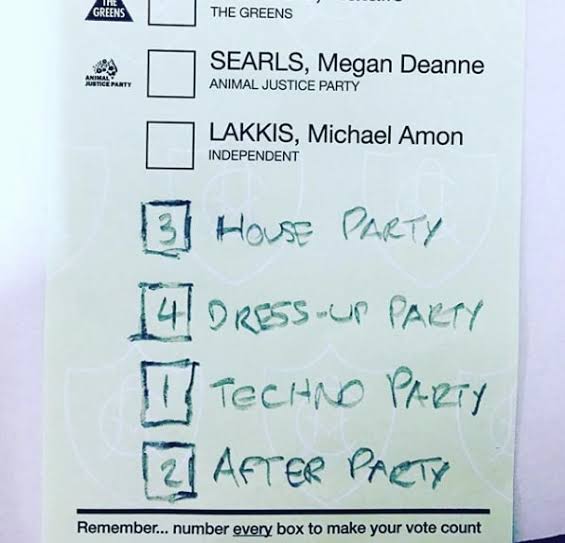 THE
GREENS
THE GREENS
SEARLS, Megan Deanne
ANIMAL
JUSTICE PARTY
ANIMAL JUSTICE PARTY
LAKKIS, Michael Amon
INDEPENDENT
3 HOUSE PARTY
4 DRESS-UP PARTY
1 TECHNO PARTY
2 AFTER PARTY
Remember... number every box to make your vote count